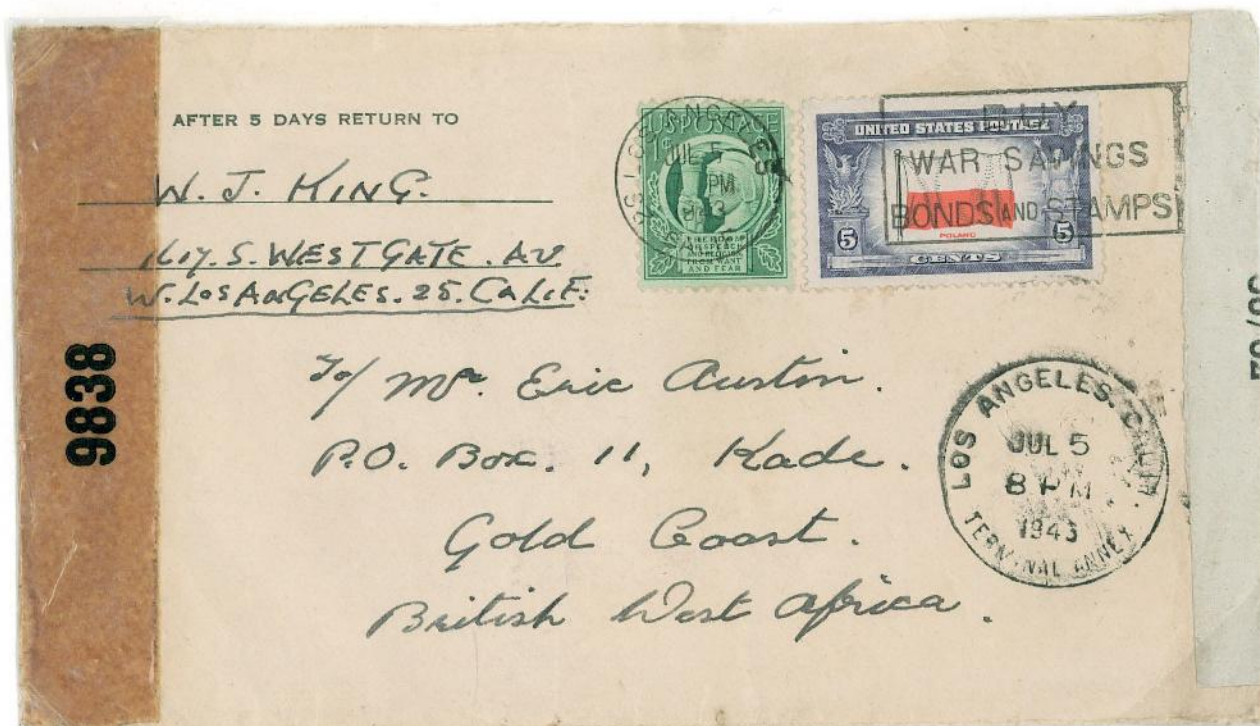 AFTER 5 DAYS RETURN TO
W. J. KING.
1617. S. WESTGATE. AV
W. LOS ANGELES. 25. CALIF:
LOS ANGELES
JUL 5
PM
1943
U.S. POSTAGE
1¢
FREEDOM
OF SPEECH
AND RELIGION
FROM WANT
AND FEAR
UNITED STATES POSTAGE
5
POLAND
5
CENTS
BUY
WAR SAVINGS
BONDS AND STAMPS
9838
To/ Mr. Eric Austin.
P.O. Box. 11, Kade.
Gold Coast.
British West Africa.
LOS ANGELES, CALIF.
JUL 5
8 PM
1943
TERMINAL ANNEX